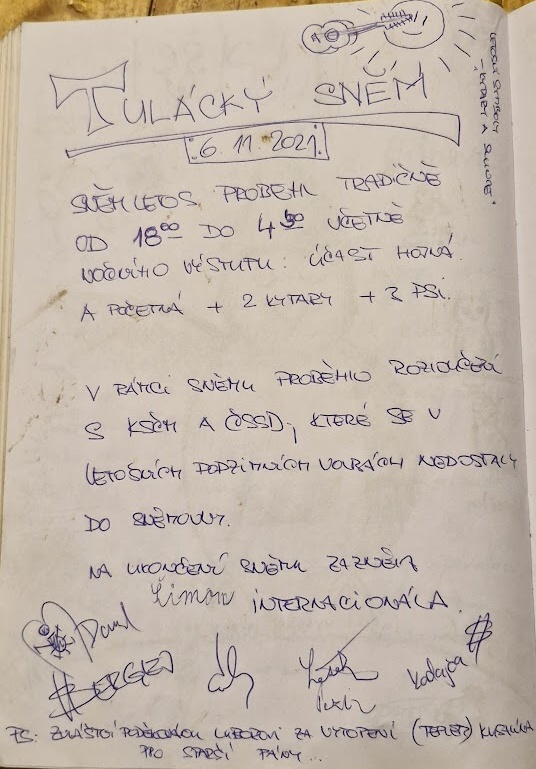 TULÁCKÝ SNĚM
6.11.2021
LETOŠNÍ SYMBOLY
- KYTARY A SLUNCE
SNĚM LETOS PROBĚHL TRADIČNĚ
OD 18⁰⁰ DO 4³⁰ VČETNĚ
NOČNÍHO VÝSTUPU. ÚČAST HOJNÁ
A POČETNÁ + 2 KYTARY + 3 PSI.
V RÁMCI SNĚMU PROBĚHLO ROZLOUČENÍ
S KSČM A ČSSD, KTERÉ SE V
LETOŠNÍCH PODZIMNÍCH VOLBÁCH NEDOSTALY
DO SNĚMOVNY.
NA UKONČENÍ SNĚMU ZAZNĚLA
Šimon INTERNACIONÁLA.
David
BERGEN
Kodajca
PS: ZVLÁŠTNÍ PODĚKOVÁNÍ LUBOROVI ZA VYTOPENÍ (TEPLEJ)
PRO STARŠÍ PÁNY...